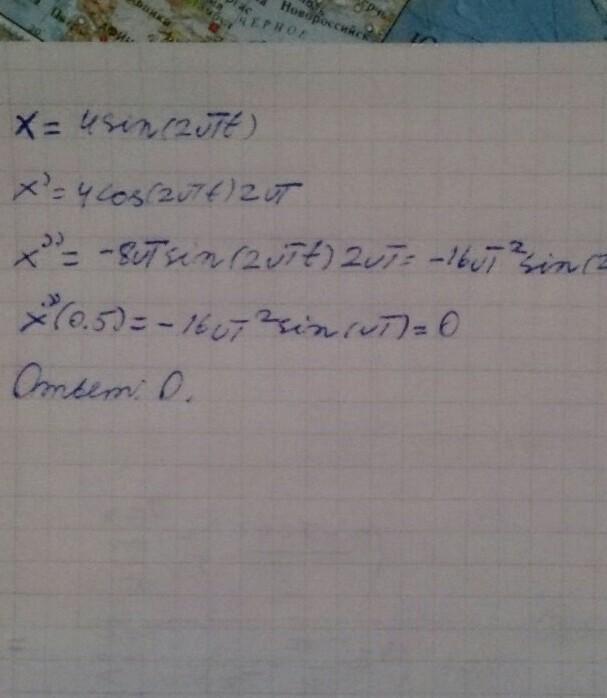 Новороссийск
ЧЕРНОЕ
x = 4sin(2πt)
x' = 4cos(2πt)2π
x'' = -8πsin(2πt)2π = -16π²sin(2
x''(0.5) = -16π²sin(π) = 0
Ответ: 0.